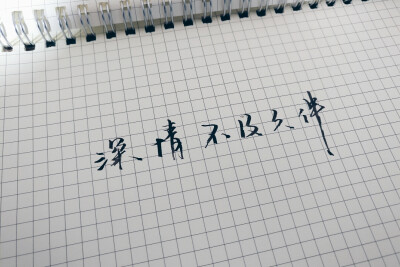 深情不及久伴